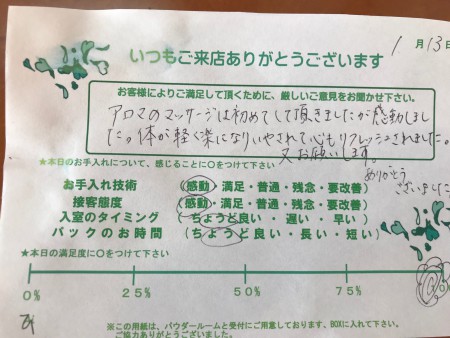 いつもご来店ありがとうございます
1月13日
お客様によりご満足して頂くために、厳しいご意見をお聞かせ下さい。
アロマのマッサージは初めてして頂きましたが感動しまし
た。体が軽く楽になりいやされて心もリフレッシュされました。
又お願いします。
ありがとう
ございました
★本日のお手入れについて、感じることに○をつけて下さい
お手入れ技術 (感動・満足・普通・残念・要改善)
接客態度 (感動・満足・普通・残念・要改善)
入室のタイミング (ちょうど良い・遅い・早い)
パックのお時間 (ちょうど良い・長い・短い)
★本日の満足度に○をつけて下さい
0% 25% 50% 75%
※この用紙は、パウダールームと受付にご用意しております、BOXに入れて下さい。
ご協力ありがとうございました。